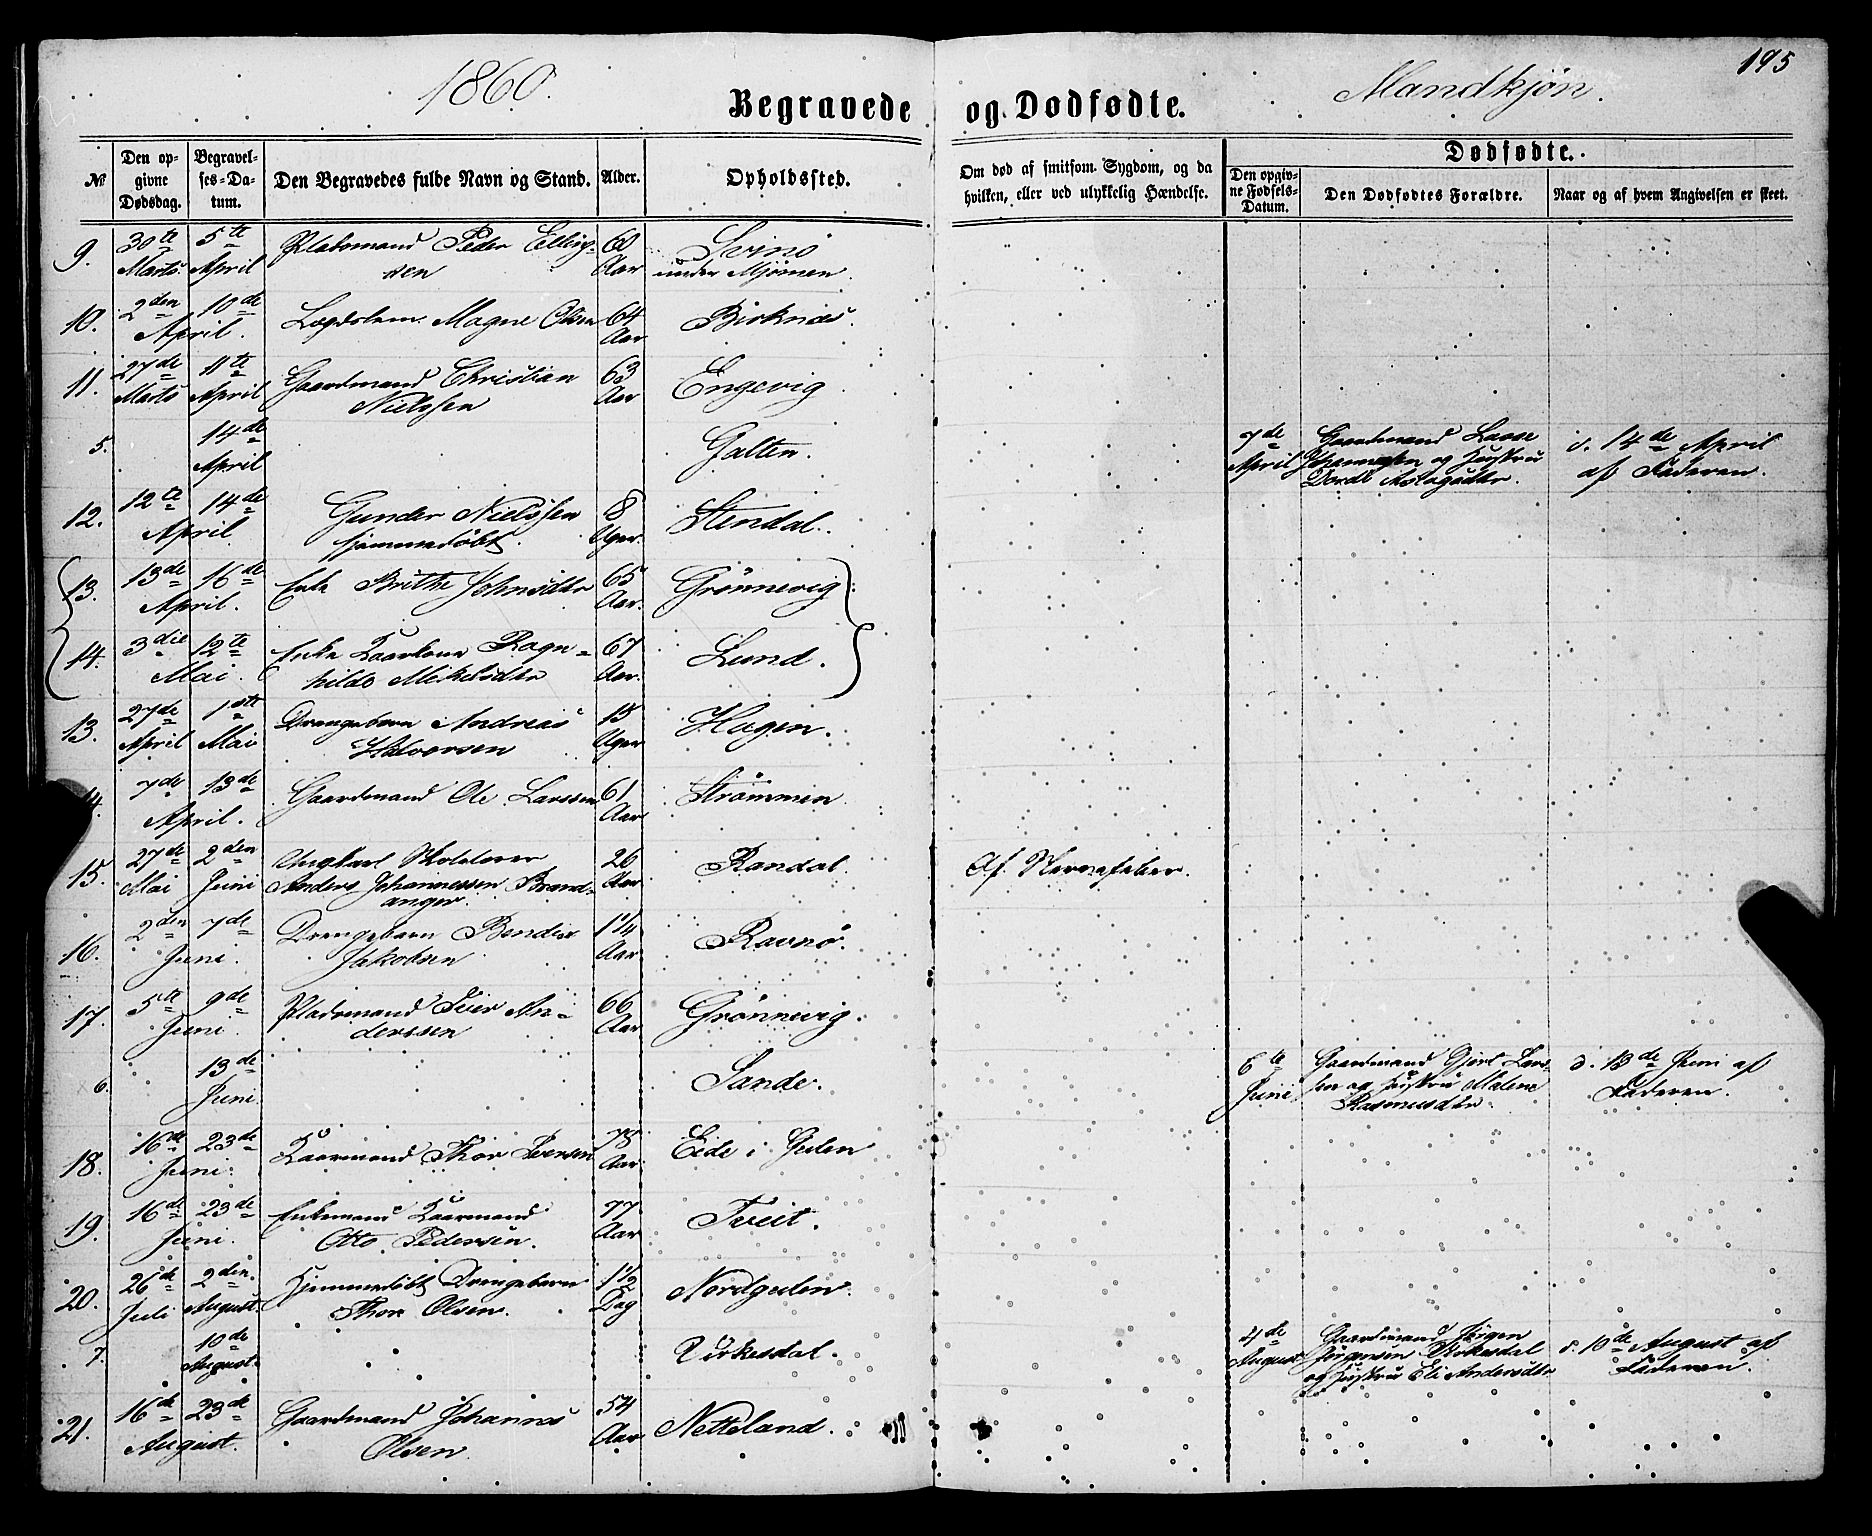 195
1860.
Mandkjøn.
Begravede og Dødfødte.
Dødfødte.
No
Den op-
givne
Dødsdag.
Begravel-
ses-Da-
tum.
Den Begravedes fulde Navn og Stand.
Alder.
Opholdssted.
Om død af smitsom Sygdom, og da
hvilken, eller ved ulykkelig Hændelse.
Den opgiv-
ne Fødsels-
Datum.
Den Dødfødtes Forældre.
Naar og af hvem Angivelsen er skeet.
9. 30te 5te Pladsmand Peder Elling- 60 Svinø
Marts April sen Aar under Mjømen.
10. 2den 10de Lægdslem Magne Olsen 64 Birknæs.
April. Aar
11. 27de 11te Gaardmand Christian 63 Engevig
Marts April Nielssen Aar
5. 14de Galten. 7de Gaardmand Lasse d. 14de April
April April Johannessen og Hustru af Faderen.
Dordi
12. 12te 14de Gunder Nielssen 8 Stendal.
April hjemmedøbt. Uger.
13. 13de 16de Enke Brithe Johnsdtr 65 Grønnevig
April. Aar.
14. 3die 12te Enke Kaarkone Ragn- 67 Lund.
Mai. hilde Mikelsdtr Aar.
13. 27de 1ste Drengebarn Andreas 15 Hagen.
April Mai Halvorsen Uger
14. 7de 13de Gaardmand Ole Larssen 61 Strømmen
April. Aar
15. 27de 2den Ungkarl Skolelærer 26 Randal. Af Nervefeber.
Mai Juni Anders Johannessen Brand- Aar
anger.
16. 2den 7de Drengebarn Bendix 1 1/4 Ravnø.
Juni. Jakobsen Aar
17. 5te 9de Pladsmand Peier An- 66 Grønnevig.
Juni. derssen Aar
6. 13de Sande. 6te Gaardmand Gjert Lars- d. 13de Juni af
Juni. Juni sen og Hustru Malene Faderen.
Rasmusdtr.
18. 16de 23de Kaarmand Thor Iversen 78 Eide i Gulen
Juni. Aar
19. 16de 23de Enkemand Kaarmand 77 Tveit.
Juni. Otto Pedersen. Aar
20. 26de 2den Hjemmedøbt Drengebarn 1 1/2 Nordgulen.
Juli August. Thor Olsen. Dag
7. 10de Virkesdal. 4de Gaardmand Jørgen d. 10de August af
August. August Jørgensen Virkesdal Faderen.
og Hustru Eli Andersdtr
21. 16de 23de Gaardmand Johannes 54 Netteland.
August. Olsen. Aar